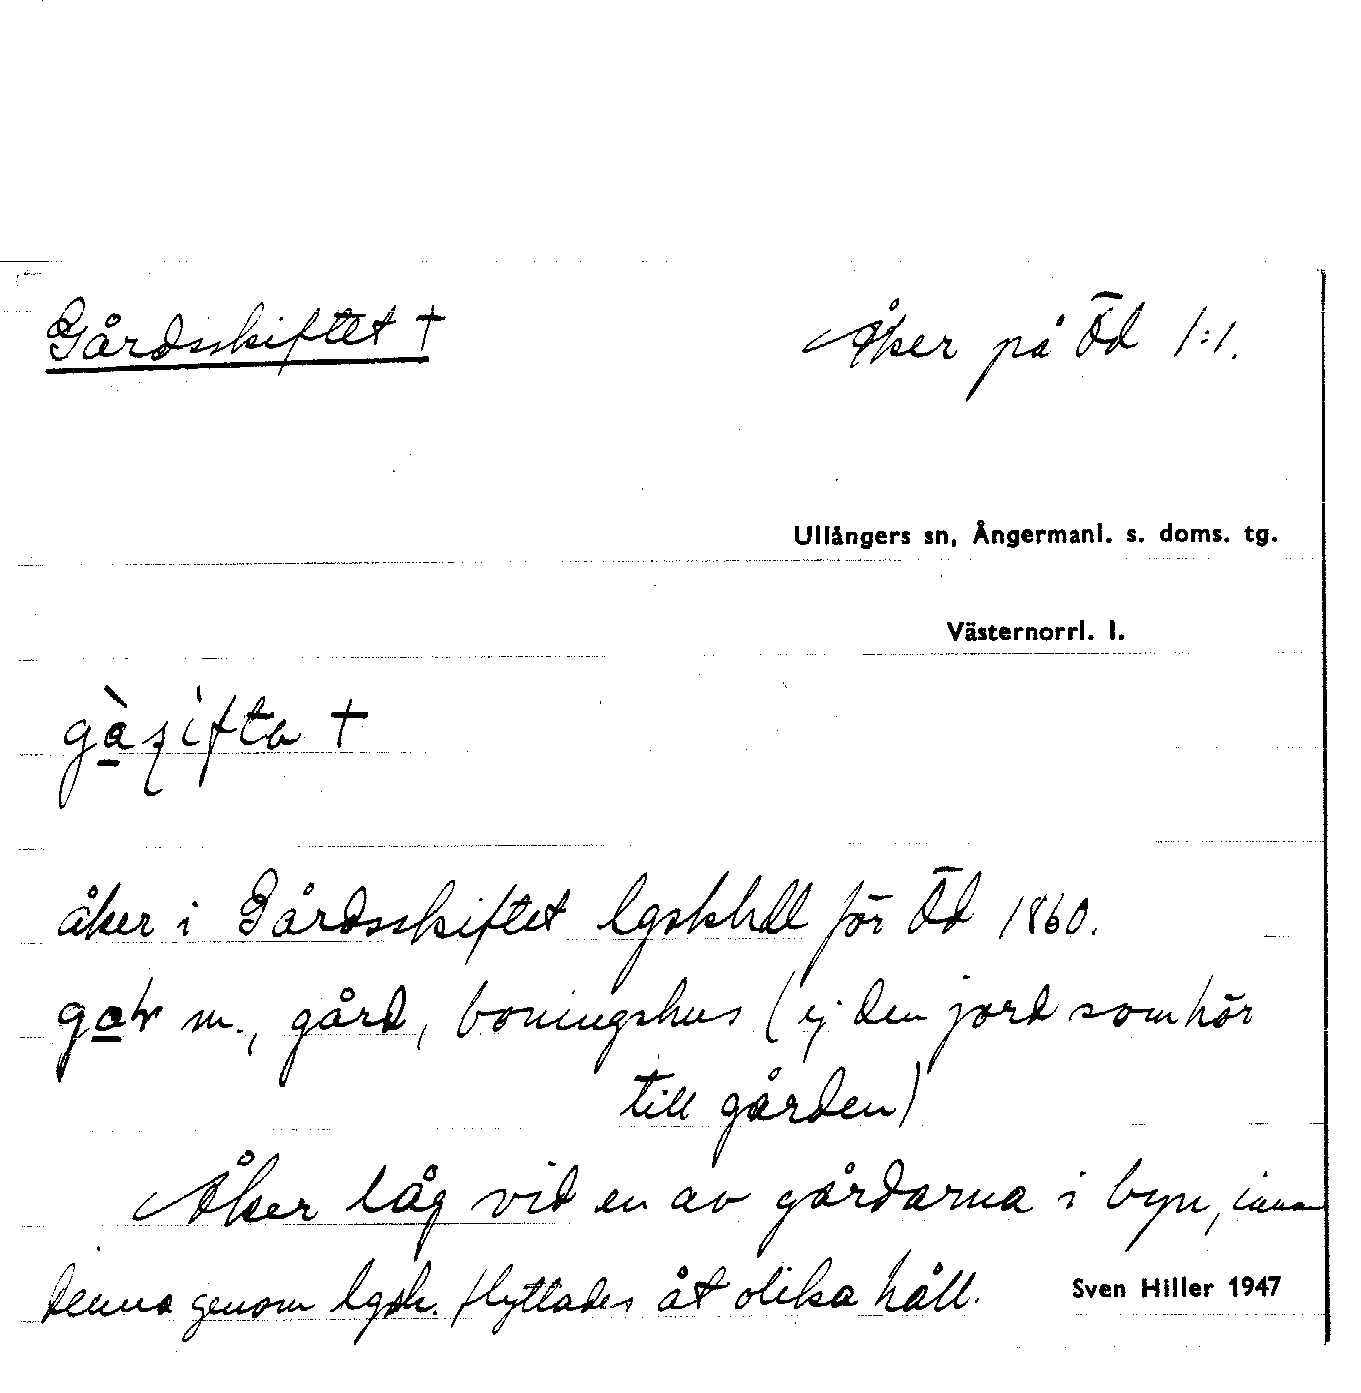 Gårdsskiftet †
Åker på Öd 1:1.
Ullångers sn, Ångermanl. s. doms. tg.
Västernorrl. l.
åker i Gårdsskiftet lgskhdl för Öd 1860.
m., gård, boningshus (ej den jord som hör
till gården)
Åker låg vid en av gårdarna i byn, innan
denna genom lgsk. flyttades åt olika håll.
Sven Hiller 1947